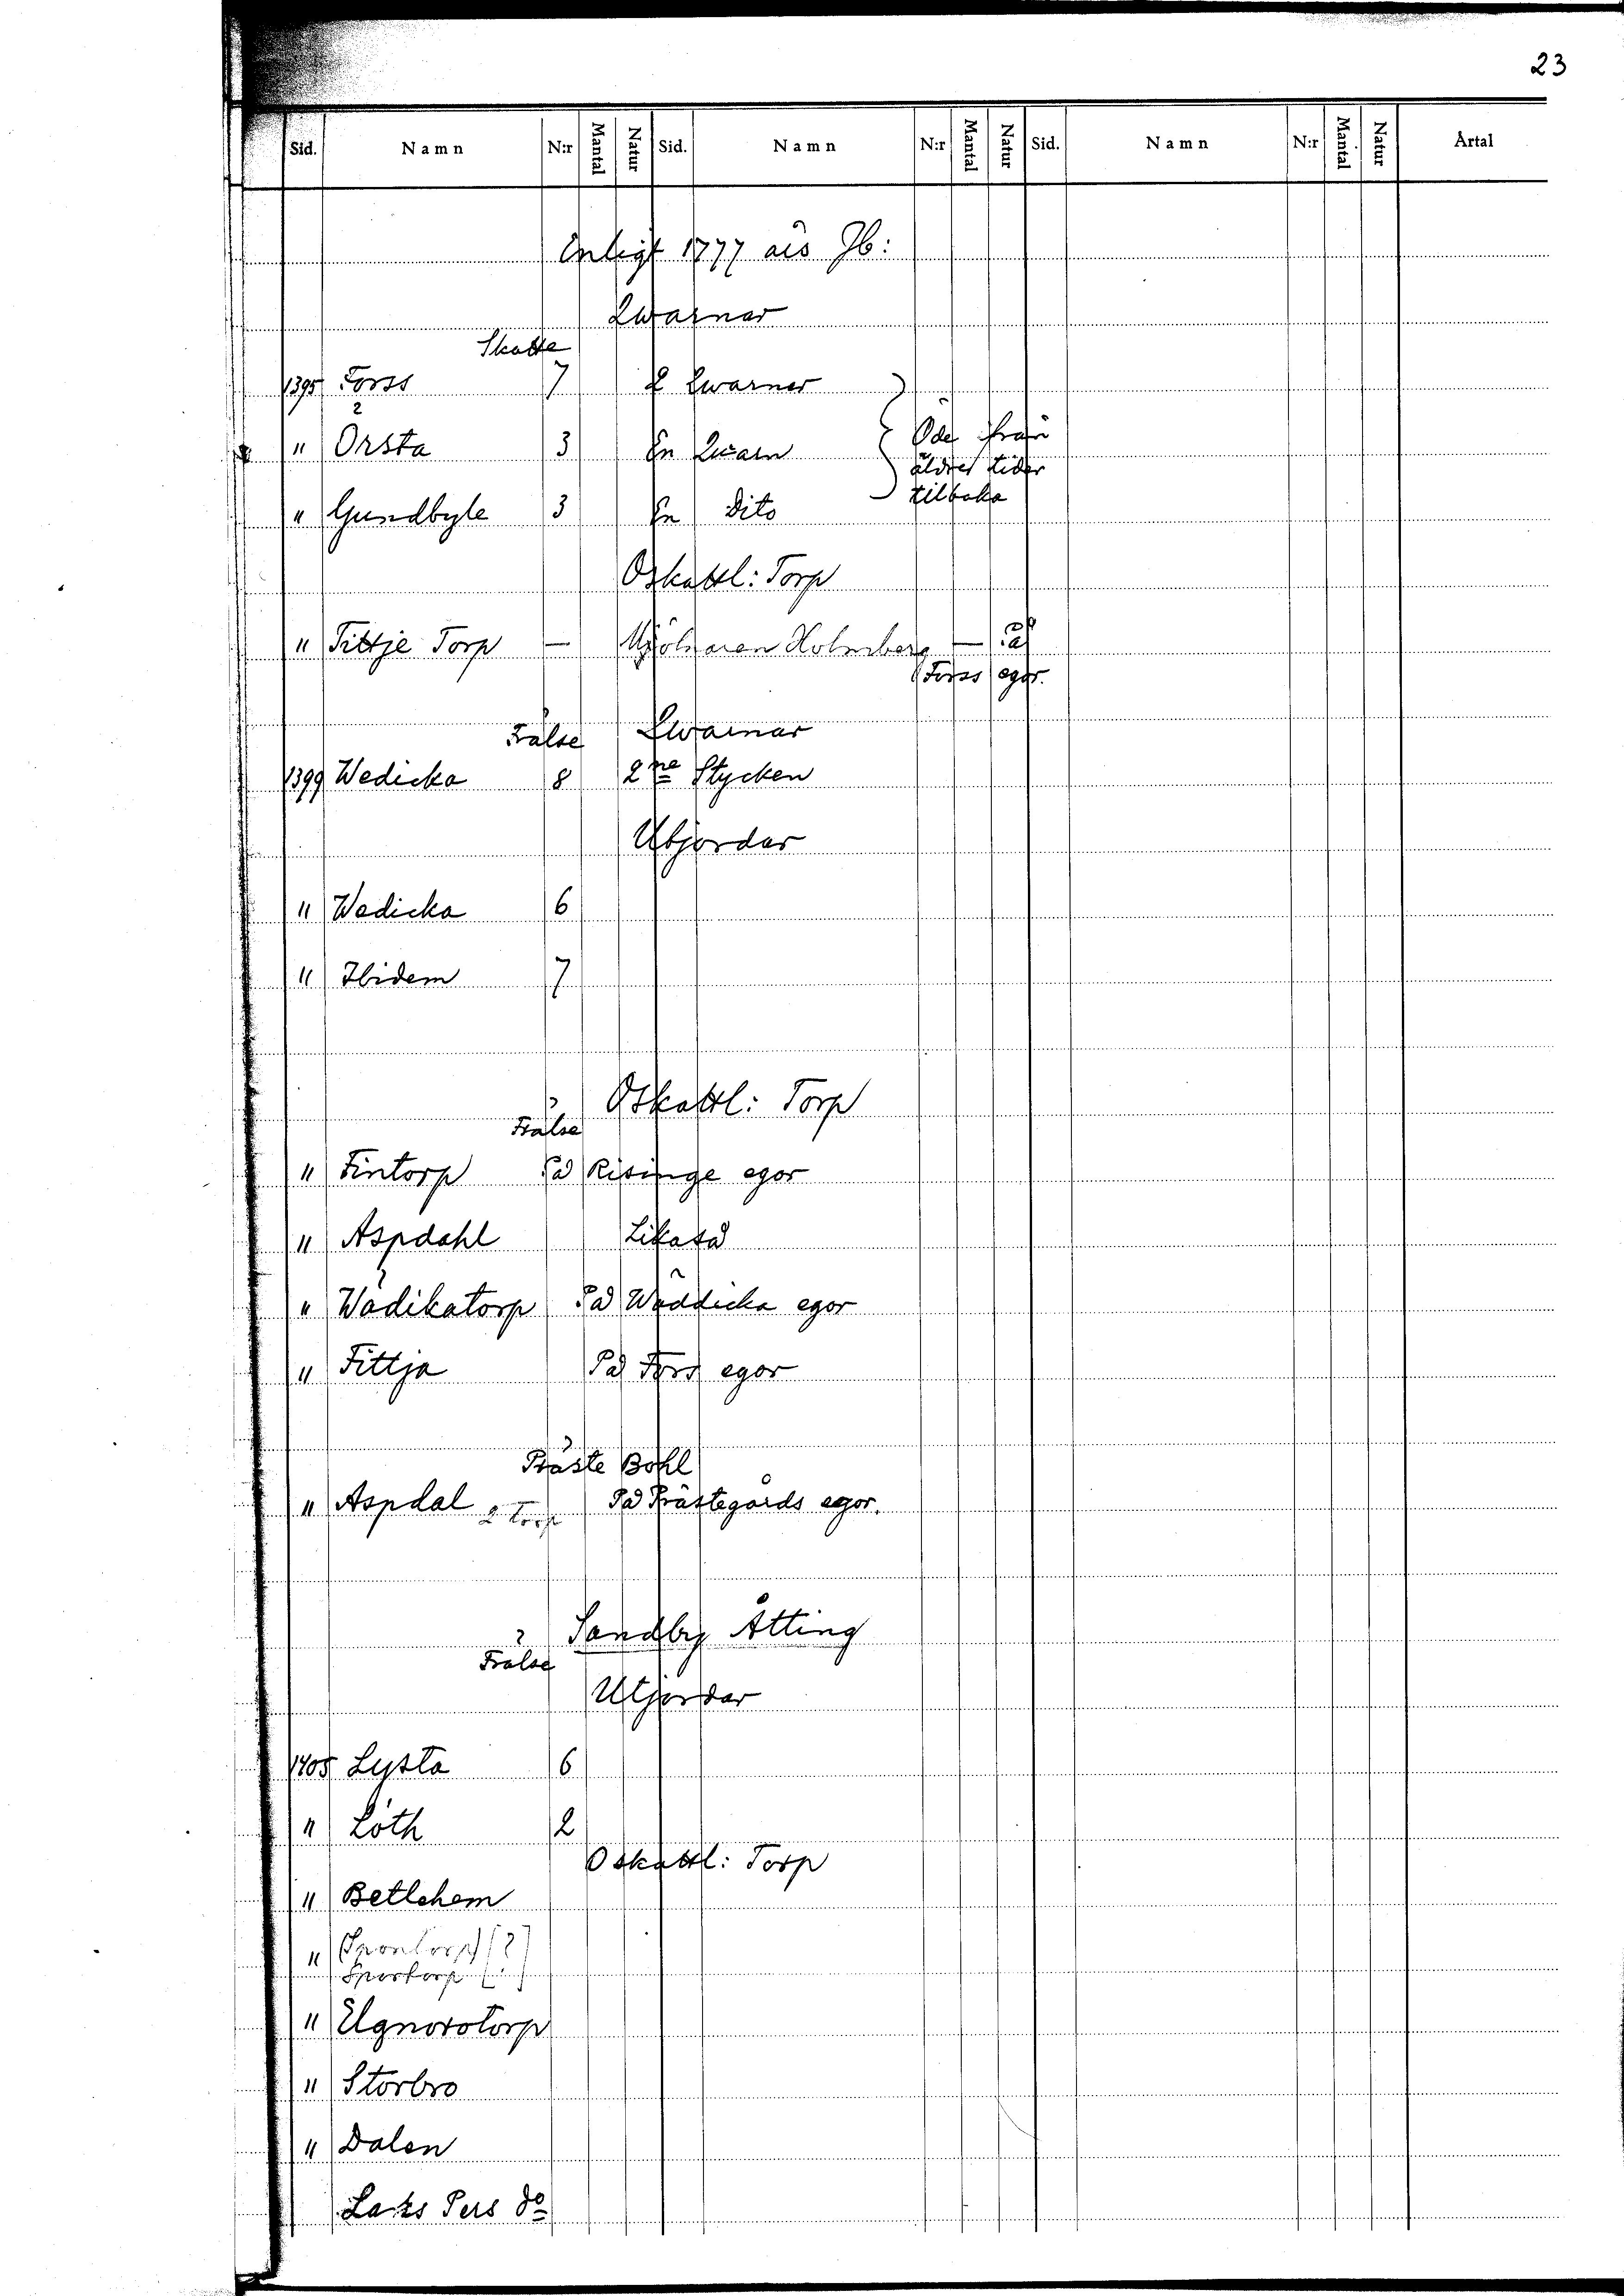 23
Sid. Namn N:r Mantal Natur Sid. Namn N:r Mantal Natur Sid. Namn N:r Mantal Natur Årtal
Enligt 1777 års Jb:
Qwarnar
Skatte
1395 Forss 7 2 Qwarnar
" Örsta 3 En Qwarn
Öde från
äldre tider
tilbaka
" Gundbyle 3 En Dito
Oskattl: Torp
" Tittje Torp — Mjölnaren Holmberg — På
Forss egor.
Frälse Qwarnar
1399 Wedicka 8 2ne Stycken
Utjordar
" Wedicka 6
" Ibidem 7
Oskattl: Torp
Frälse
" Fintorp På Risinge egor
" Aspdahl Likaså
" Wädikatorp På Wäddicka egor
" Fittja På Fors egor
Präste Bohl
" Aspdal 2 Torp På Prästegårds egor.
Sandby Åtting
Frälse
Utjordar
1405 Lysta 6
" Löth 2
Oskattl: Torp
" Betlehem
" Sportorp [?]
" Storbro
" Dalen
Lars Pers do